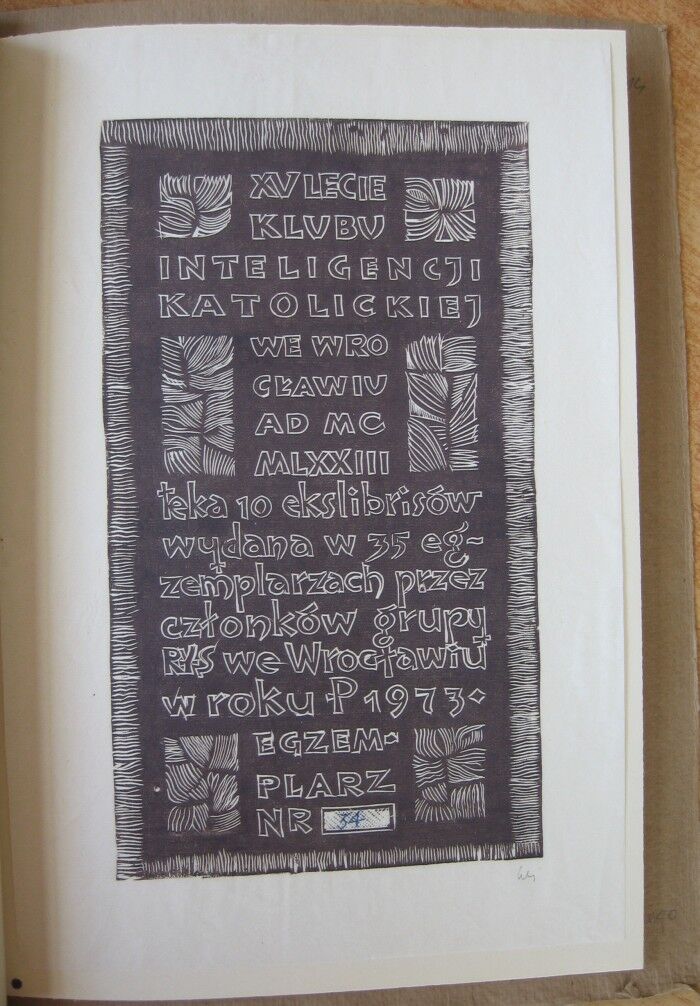 XV LECIE
KLUBU
INTELIGENCJI
KATOLICKIEJ
WE WRO
CŁAWIU
AD MC
MLXXIII
teka 10 ekslibrisów
wydana w 35 eg-
zemplarzach przez
członków grupy
RYS we Wrocławiu
w roku P 1973
EGZEM-
PLARZ
NR 34